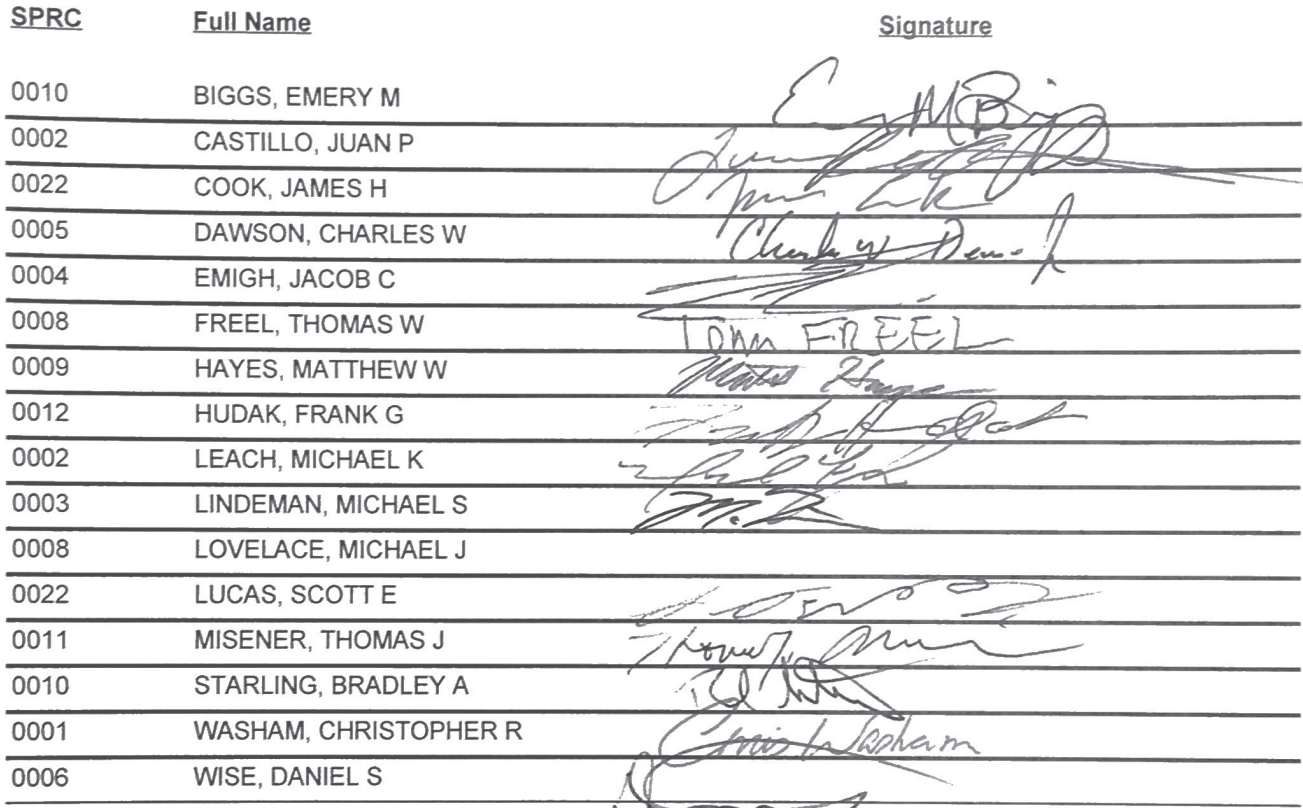 SPRC Full Name Signature
0010 BIGGS, EMERY M Emery M Bigg
0002 CASTILLO, JUAN P Juan
0022 COOK, JAMES H
0005 DAWSON, CHARLES W Charles W
0004 EMIGH, JACOB C
0008 FREEL, THOMAS W TOM FREEL
0009 HAYES, MATTHEW W
0012 HUDAK, FRANK G
0002 LEACH, MICHAEL K
0003 LINDEMAN, MICHAEL S
0008 LOVELACE, MICHAEL J
0022 LUCAS, SCOTT E
0011 MISENER, THOMAS J
0010 STARLING, BRADLEY A
0001 WASHAM, CHRISTOPHER R Chris Washam
0006 WISE, DANIEL S